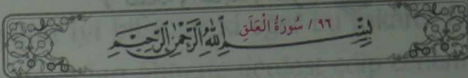 ٩٦ / سُورَةُ الْعَلَقِ
بِسْمِ اللَّهِ الرَّحْمَٰنِ الرَّحِيمِ